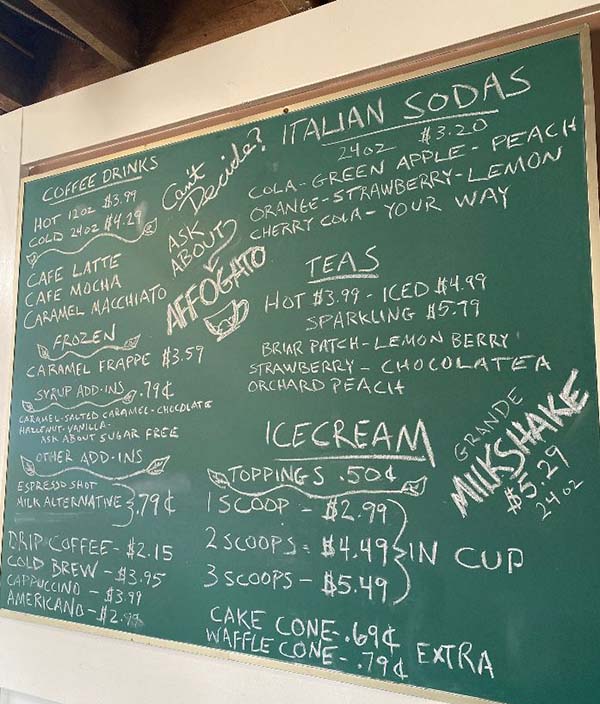 COFFEE DRINKS
HOT 12 OZ $3.99
COLD 24 OZ $4.29
CAFE LATTE
CAFE MOCHA
CARAMEL MACCHIATO
FROZEN
CARAMEL FRAPPE $3.59
SYRUP ADD-INS .79¢
CARAMEL-SALTED CARAMEL-CHOCOLATE
HAZELNUT-VANILLA-
ASK ABOUT SUGAR FREE
OTHER ADD-INS
ESPRESSO SHOT
MILK ALTERNATIVE } .79¢
DRIP COFFEE - $2.15
COLD BREW - $3.95
CAPPUCCINO - $3.99
AMERICANO - $2.99
Can't
Decide?
ASK
ABOUT
AFFOGATO
ITALIAN SODAS
24 OZ $3.20
COLA - GREEN APPLE - PEACH
ORANGE - STRAWBERRY - LEMON
CHERRY COLA - YOUR WAY
TEAS
HOT $3.99 - ICED $4.99
SPARKLING $5.79
BRIAR PATCH - LEMON BERRY
STRAWBERRY - CHOCOLATEA
ORCHARD PEACH
ICECREAM
TOPPINGS .50¢
1 SCOOP - $2.99
2 SCOOPS - $4.49 } IN CUP
3 SCOOPS - $5.49
CAKE CONE - .69¢
WAFFLE CONE - .79¢ EXTRA
GRANDE
MILKSHAKE
$5.29
24 OZ